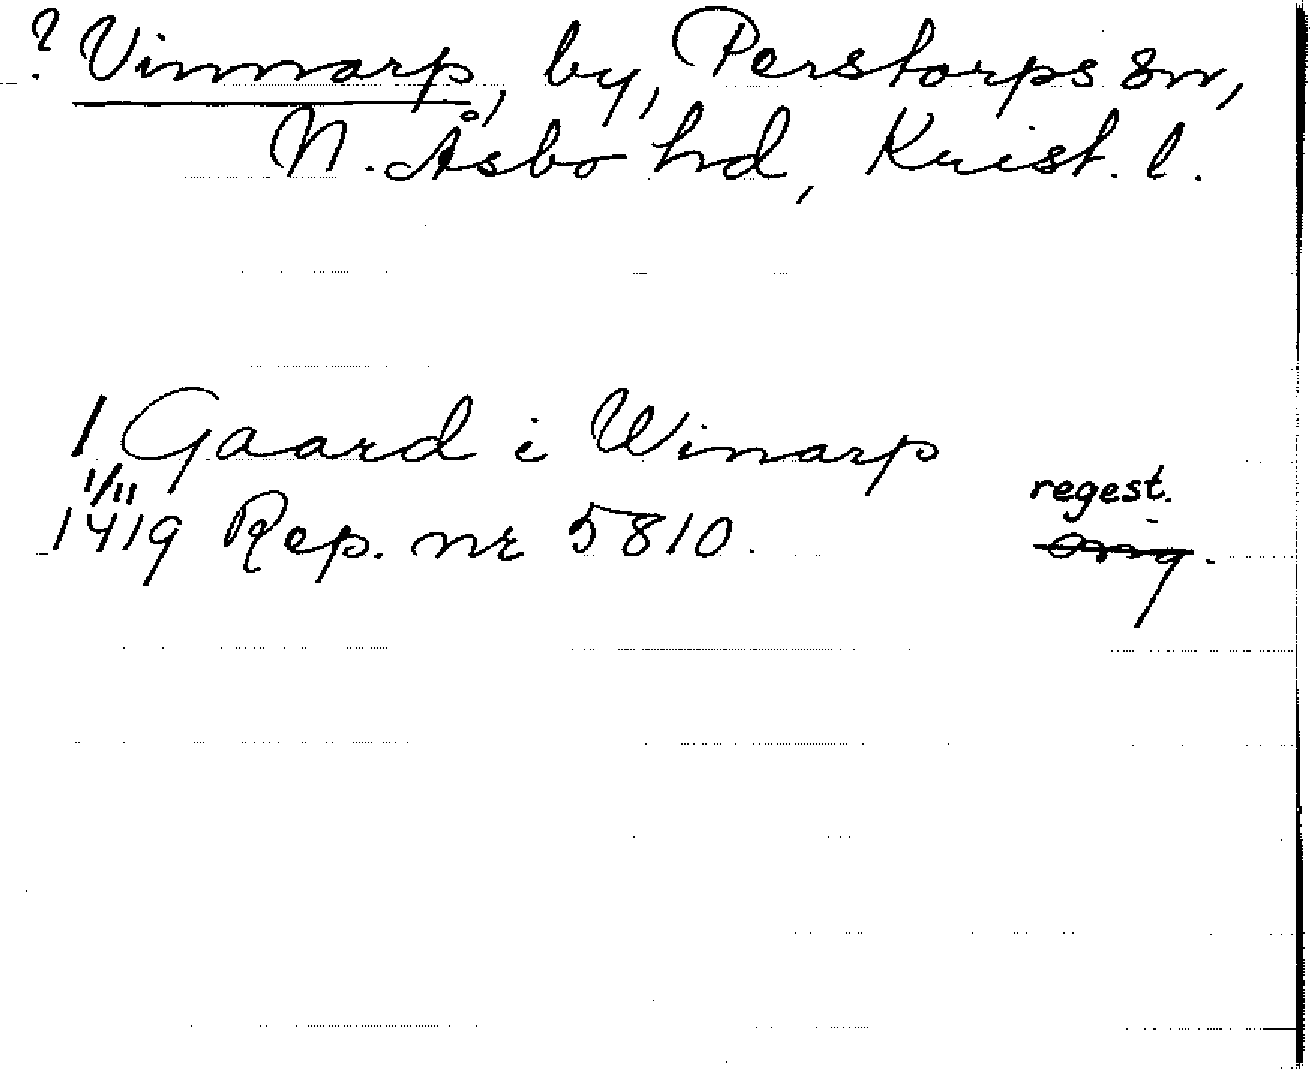 ? Vinnarp, by, Perstorps sn,
N. Åsbo hd, Krist. l.
1 Gaard i Winarp
1/11
regest.
1419 Rep. nr 5810.